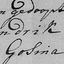 en gedoopt
endrik
Gosina